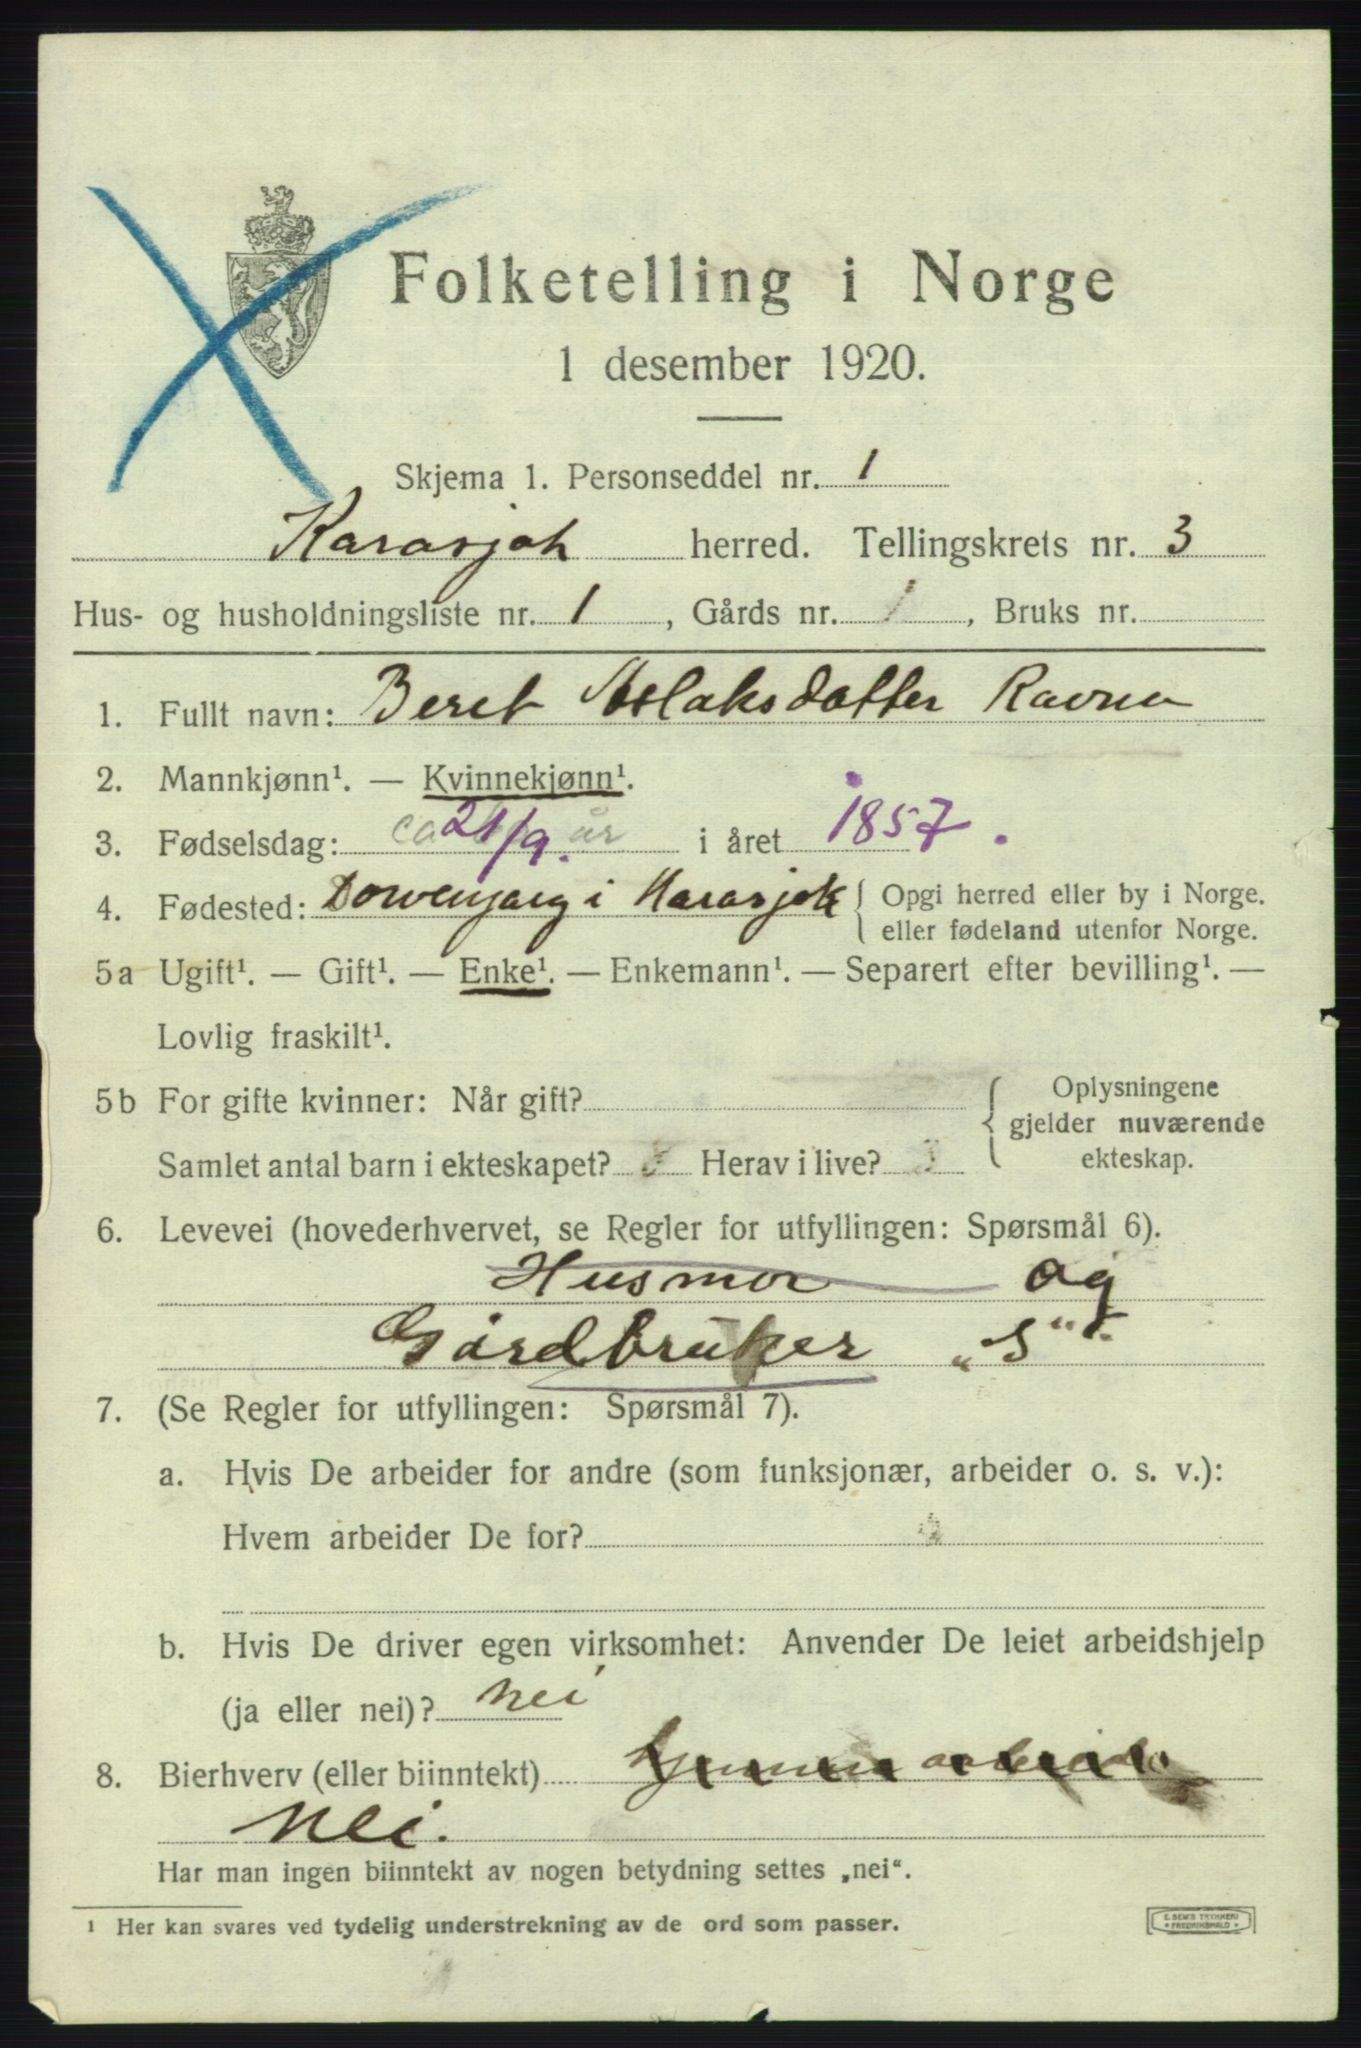 Folketelling i Norge
1 desember 1920.
Skjema 1. Personseddel nr. 1
Karasjok herred. Tellingskrets nr. 3
Hus- og husholdningsliste nr. 1, Gårds nr. 1, Bruks nr.
1. Fullt navn: Beret Aslaksdatter Ravna
2. Mannkjønn¹. — Kvinnekjønn¹.
3. Fødselsdag: ca 21/9. år i året 1857.
4. Fødested: Dorvenjarg i Karasjok { Opgi herred eller by i Norge.
eller fødeland utenfor Norge.
5a Ugift¹. — Gift¹. — Enke¹. — Enkemann¹. — Separert efter bevilling¹. —
Lovlig fraskilt¹.
5b For gifte kvinner: Når gift? { Oplysningene
gjelder nuværende
Samlet antal barn i ekteskapet? Herav i live? ekteskap.
6. Levevei (hovederhvervet, se Regler for utfyllingen: Spørsmål 6).
Husmor og
Gårdbruker „S“
7. (Se Regler for utfyllingen: Spørsmål 7).
a. Hvis De arbeider for andre (som funksjonær, arbeider o. s. v.):
Hvem arbeider De for?
b. Hvis De driver egen virksomhet: Anvender De leiet arbeidshjelp
(ja eller nei)? nei
8. Bierhverv (eller biinntekt)
Nei.
Har man ingen biinntekt av nogen betydning settes „nei“.
¹ Her kan svares ved tydelig understrekning av de ord som passer.
E. SEM'S TRYKKERI
FREDRIKSHALD